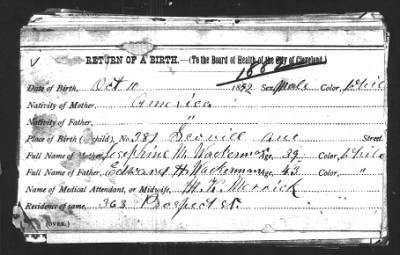 RETURN OF A BIRTH.—(To the Board of Health of the City of Cleveland.)
Date of Birth, Oct 10 1882 Sex, Male Color, White
Nativity of Mother, America
Nativity of Father, "
Place of Birth (of child), No. 281 Scovill ave Street.
Full Name of Mother, Josephine M. Wackerman Age, 39 Color, White
Full Name of Father, Edward H. Wackerman Age, 43 Color, "
Name of Medical Attendant, or Midwife, M. K. Merrick
Residence of same, 363 Prospect st.
(OVER.)